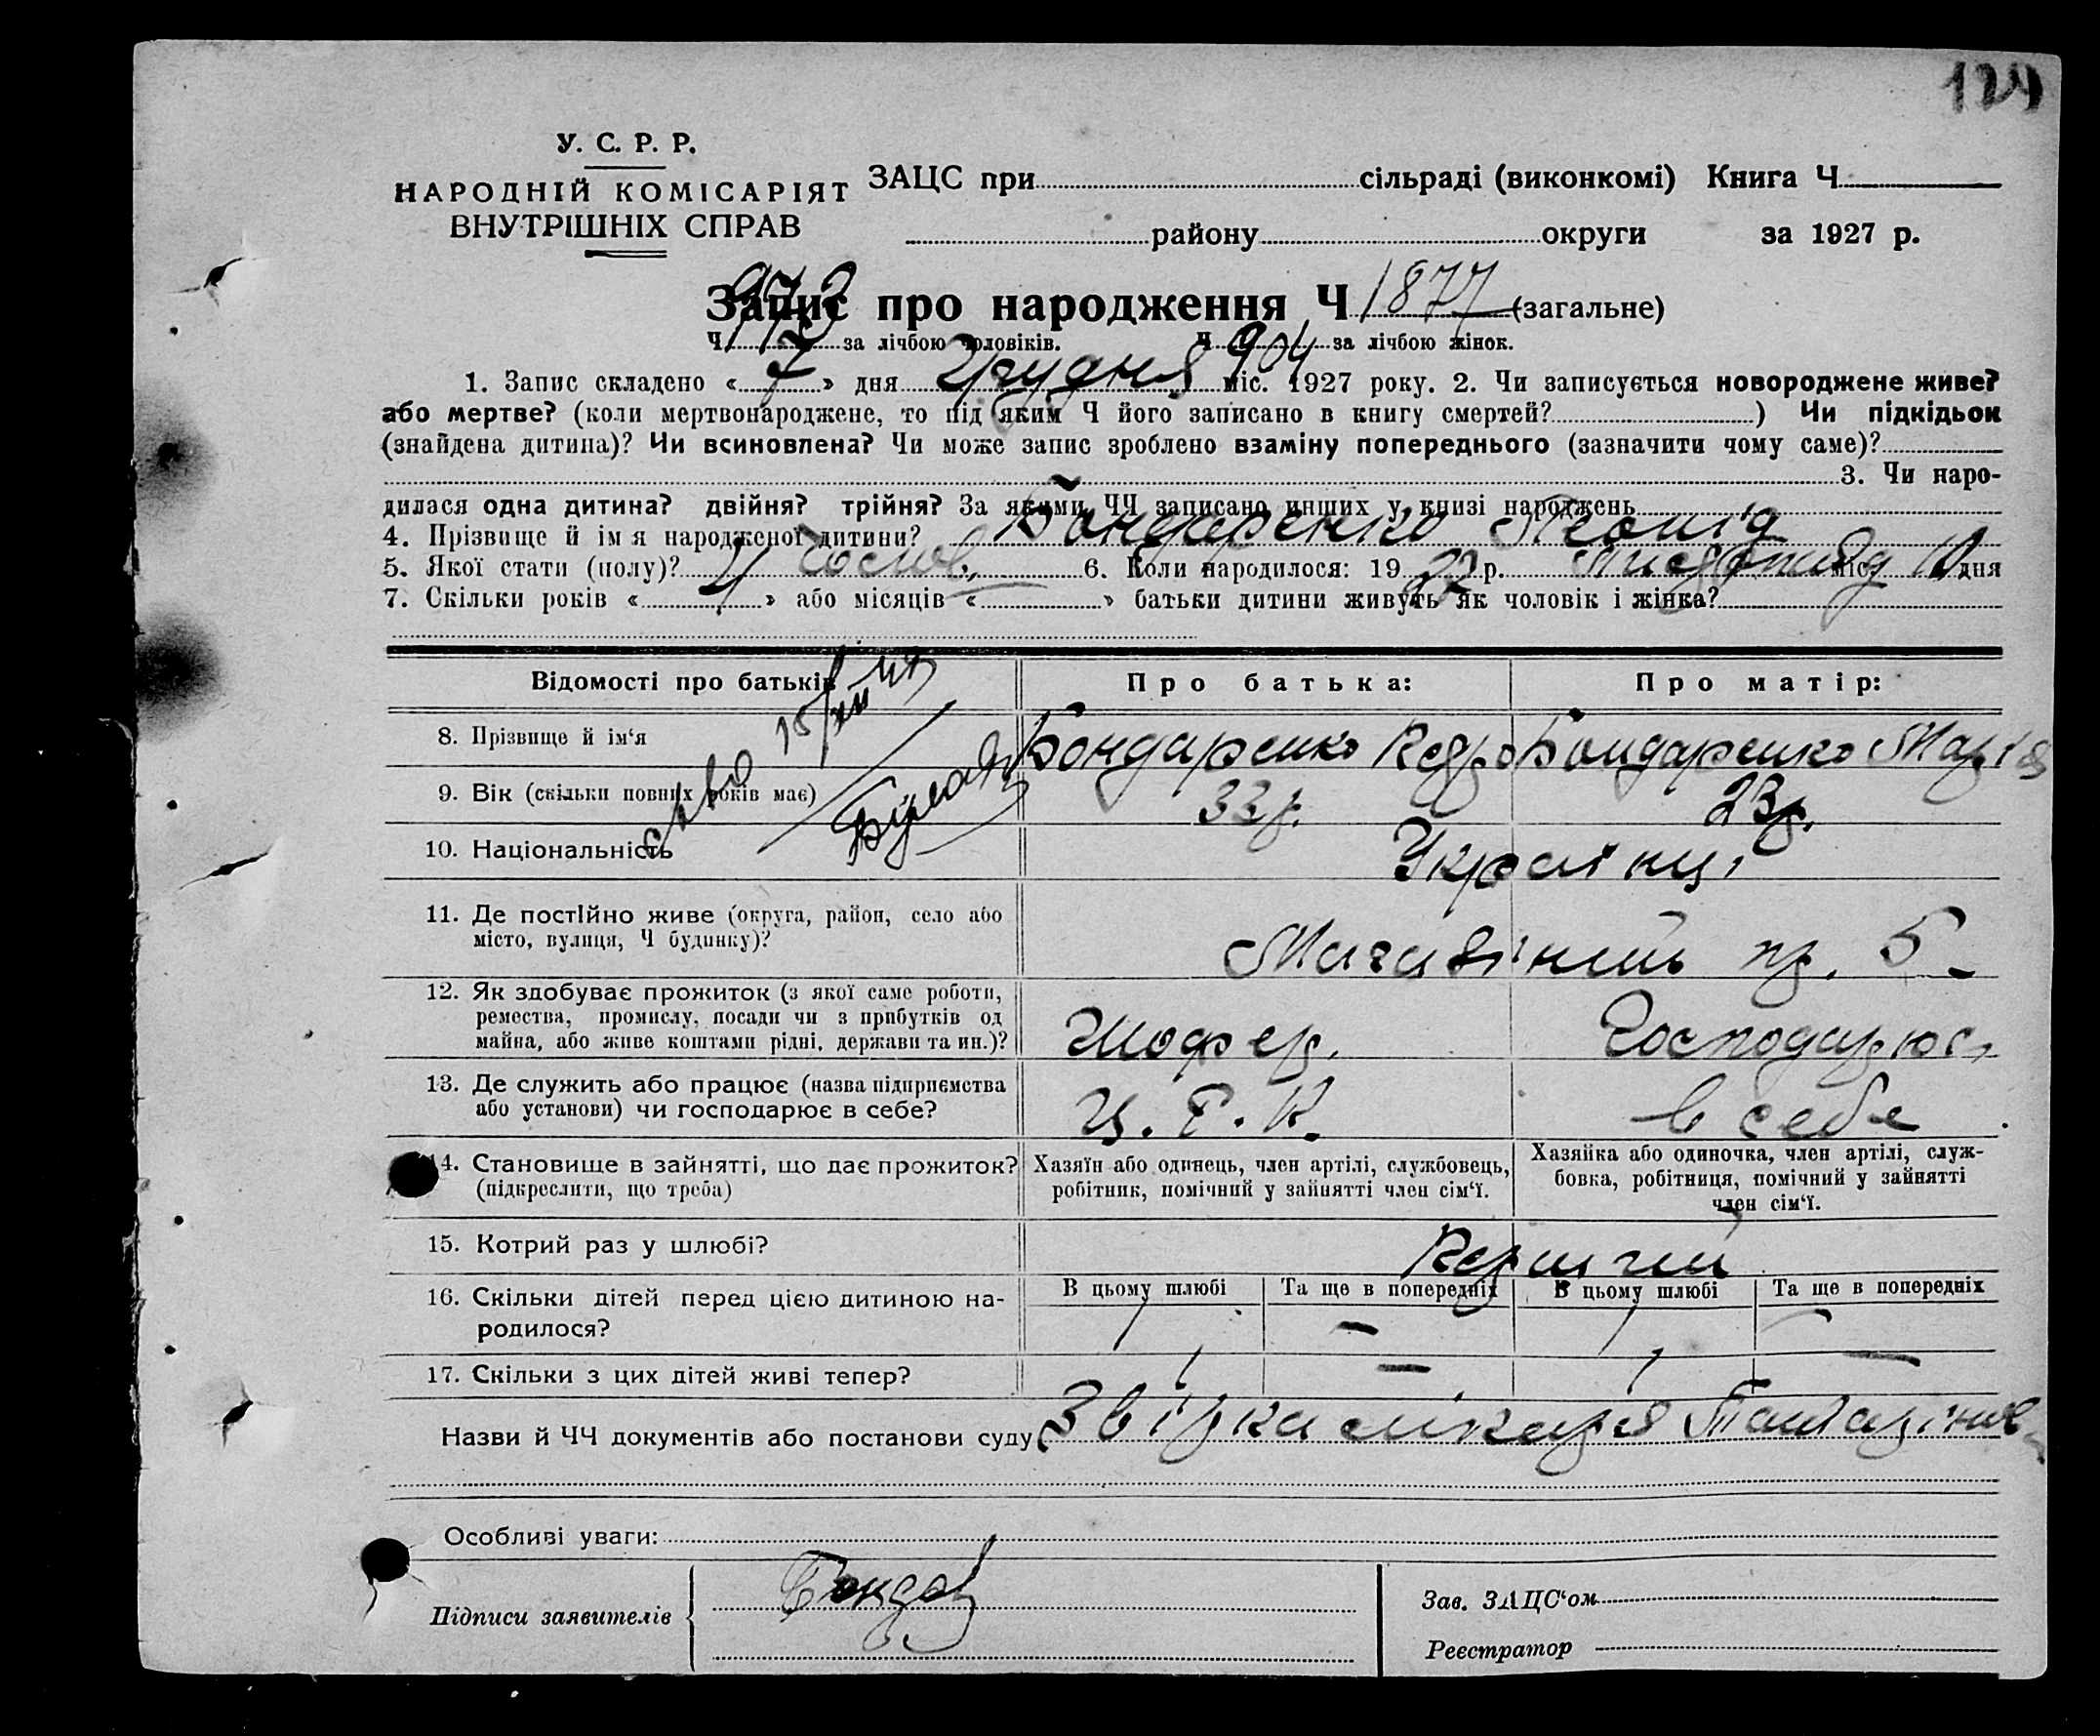 124
У. С. Р. Р.
НАРОДНІЙ КОМІСАРІЯТ
ВНУТРІШНІХ СПРАВ
ЗАЦС при сільраді (виконкомі) Книга Ч
району округи за 1927 р.
Запис про народження Ч 1877 (загальне)
Ч 973 за лічбою чоловіків. Ч 904 за лічбою жінок.
1. Запис складено « 7 » дня Грудня міс. 1927 року. 2. Чи записується новороджене живе?
або мертве? (коли мертвонароджене, то під яким Ч його записано в книгу смертей? ) Чи підкідьок
(знайдена дитина)? Чи всиновлена? Чи може запис зроблено взаміну попереднього (зазначити чому саме)?
3. Чи наро-
дилася одна дитина? двійня? трійня? За якими ЧЧ записано инших у книзі народжень
4. Прізвище й імя народженої дитини? Бондаренко Леонід
5. Якої стати (полу)? Чолов. 6. Коли народилося: 19 27 р. Листопад міс. дня
7. Скільки років « 4 » або місяців « » батьки дитини живуть як чоловік і жінка?
Відомості про батьків Про батька: Про матір:
8. Прізвище й ім‘я Бондаренко Бондаренко Марія
9. Вік (скільки повних років має) 33 р. 23 р.
10. Національність Українці
11. Де постійно живе (округа, район, село або
місто, вулиця, Ч будинку)? 5
12. Як здобуває прожиток (з якої саме роботи,
ремества, промислу, посади чи з прибутків од
майна, або живе коштами рідні, держави та ин.)? Шофер. Господарює
13. Де служить або працює (назва підприємства
або установи) чи господарює в себе? Ц. Р. К. в себе
14. Становище в зайнятті, що дає прожиток?
(підкреслити, що треба)
Хазяїн або одинець, член артілі, службовець,
робітник, помічний у зайнятті член сім‘ї.
Хазяйка або одиночка, член артілі, служ-
бовка, робітниця, помічний у зайнятті
член сім‘ї.
15. Котрий раз у шлюбі? Перший
16. Скільки дітей перед цією дитиною на-
родилося?
В цьому шлюбі Та ще в попередніх В цьому шлюбі Та ще в попередніх
1 — 1 —
17. Скільки з цих дітей живі тепер? 1 — 1 —
Назви й ЧЧ документів або постанови суду Звірка лікаря
Особливі уваги:
Підписи заявителів
Зав. ЗАЦС‘ом
Реєстратор